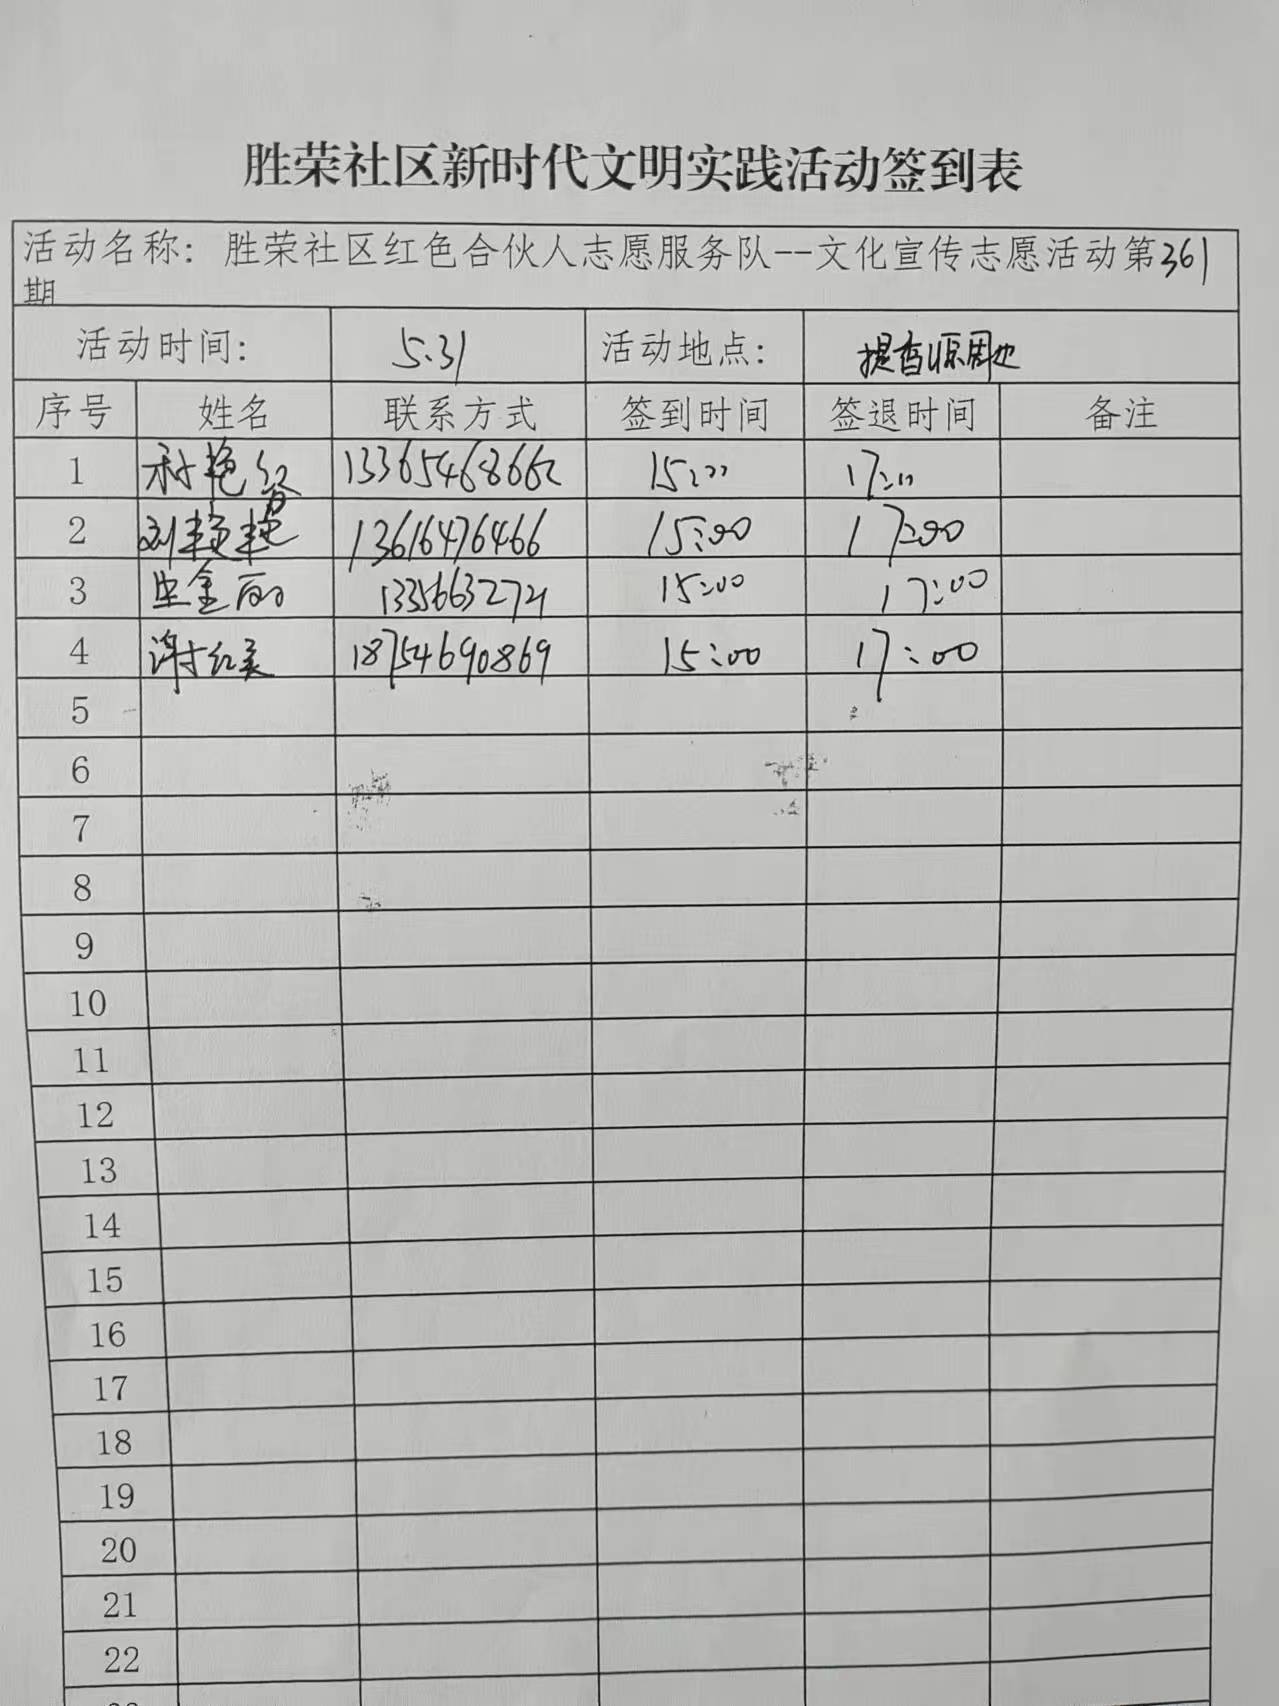 胜荣社区新时代文明实践活动签到表
活动名称：胜荣社区红色合伙人志愿服务队--文化宣传志愿活动第361
期
活动时间： 5.31 活动地点： 提香源周边
序号 姓名 联系方式 签到时间 签退时间 备注
1 艳 15:00 17:00
2 刘艳艳 13616476466 15:00 17:00
3 金丽 15:00 17:00
4 谢红美 18754690869 15:00 17:00
5
6
7
8
9
10
11
12
13
14
15
16
17
18
19
20
21
22